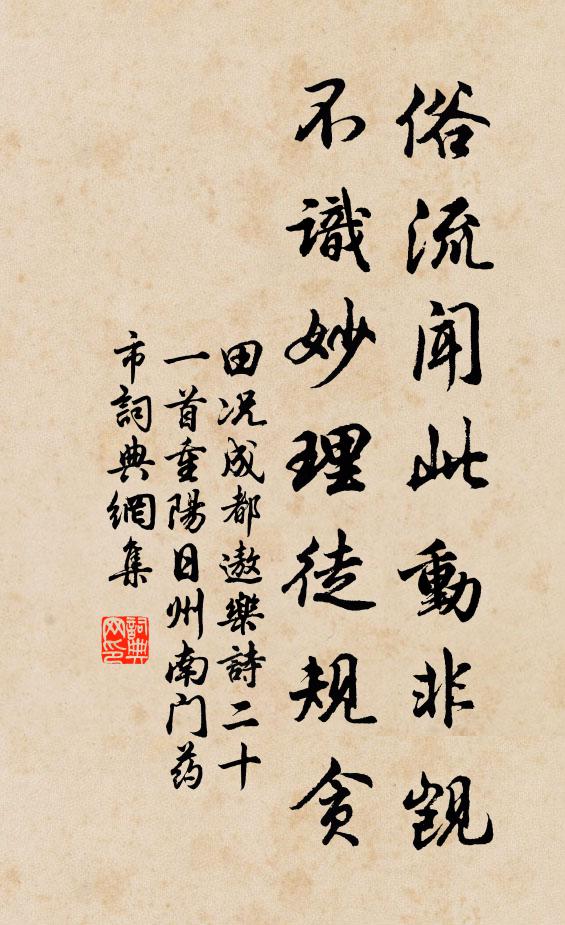 俗流闻此動非觊
不識妙理徒規贪
田况成都遨樂詩二十
一首重陽日州南门药
市詞典網集
詞典网印